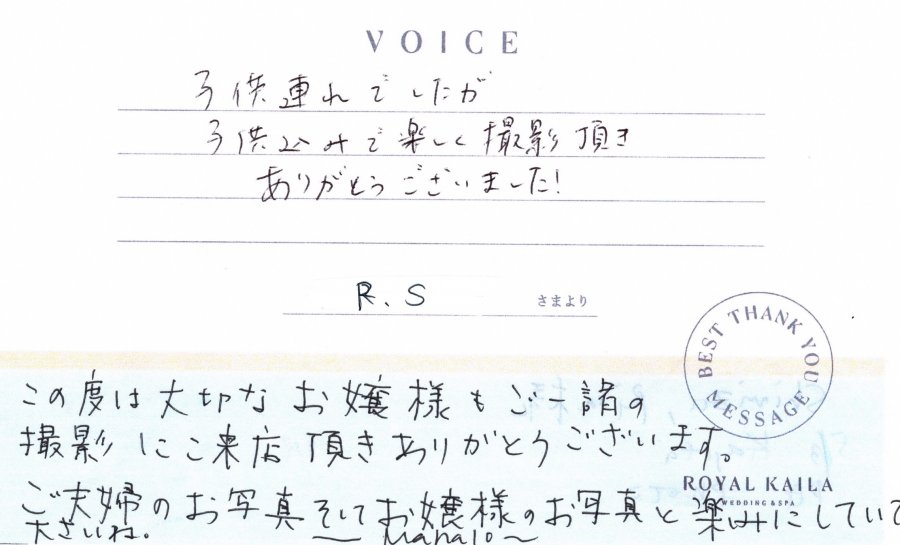 VOICE
子供連れでしたが
子供込みで楽しく撮影頂き
ありがとうございました!
R.S さまより
BEST THANK YOU MESSAGE
この度は大切なお嬢様もご一諸の
撮影にご来店頂きありがとうございます。
ROYAL KAILA
WEDDING & SPA
ご夫婦のお写真そしてお嬢様のお写真と楽しみにしていて
下さいね。 〜Mahalo〜